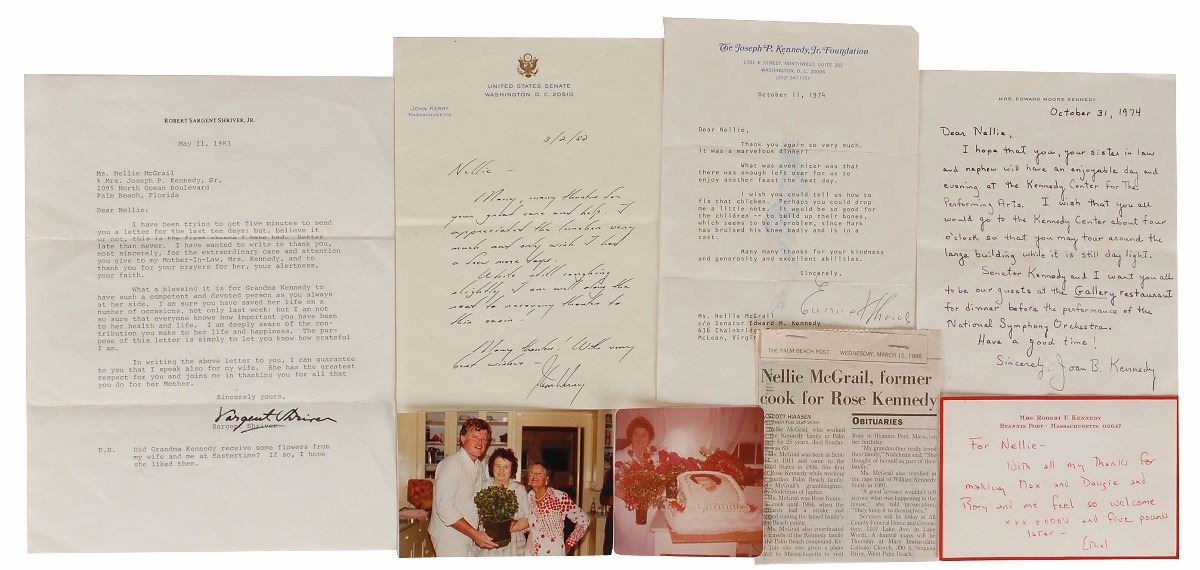 ROBERT SARGENT SHRIVER, JR.
May 11, 1983
Ms. Nellie McGrail
% Mrs. Joseph P. Kennedy, Sr.
1095 North Ocean Boulevard
Palm Beach, Florida
Dear Nellie:
I have been trying to get five minutes to send
you a letter for the last ten days: but, believe it
or not, this is the first chance I have had. Better
late than never. I have wanted to write to thank you,
most sincerely, for the extraordinary care and attention
you give to my Mother-In-Law, Mrs. Kennedy, and to
thank you for your prayers for her, your alertness,
your faith.
What a blessing it is for Grandma Kennedy to
have such a competent and devoted person as you always
at her side. I am sure you have saved her life on a
number of occasions, not only last week; but I am not
so sure that everyone knows how important you have been
to her health and life. I am deeply aware of the con-
tribution you make to her life and happiness. The pur-
pose of this letter is simply to let you know how grateful
I am.
In writing the above letter to you, I can guarantee
to you that I speak also for my wife. She has the greatest
respect for you and joins me in thanking you for all that
you do for her Mother.
Sincerely yours,
Sargent Shriver
Sargent Shriver
P.S. Did Grandma Kennedy receive some flowers from
my wife and me at Eastertime? If so, I hope
she liked them.
UNITED STATES SENATE
WASHINGTON, D.C. 20510
JOHN KERRY
MASSACHUSETTS
Nellie –
Many, many thanks for
your great care and help. I
appreciated the luncheon very
much and only wish I had
a few more days.
While still coughing
slightly I am well along the
road to recovery thanks to
this oasis.
Many thanks! With very
best wishes –
John Kerry
The Joseph P. Kennedy, Jr. Foundation
1701 K STREET, NORTHWEST, SUITE 205
WASHINGTON, D. C. 20006
(202) 347-1731
October 11, 1974
Dear Nellie,
Thank you again so very much.
It was a marvelous dinner!
What was even nicer was that
there was enough left over for us to
enjoy another feast the next day.
I wish you could tell us how to
fix that chicken. Perhaps you could drop
me a little note. It would be so good for
the children -- to build up their bones,
which seems to be a problem, since Mark
has bruised his knee badly and is in a
cast.
Many many thanks for your kindness
and generosity and excellent abilities.
Sincerely,
Eunice Shriver
Ms. Nellie McGrail
c/o Senator Edward M. Kennedy
636 Chainbridge
McLean, Virgi
MRS. EDWARD MOORE KENNEDY
October 31, 1974
Dear Nellie,
I hope that you, your sister in law
and nephew will have an enjoyable day and
evening at the Kennedy Center For The
Performing Arts. I wish that you all
would go to the Kennedy Center about four
o'clock so that you may tour around the
large building while it is still day light.
Senator Kennedy and I want you all
to be our guests at the Gallery restaurant
for dinner before the performance of the
National Symphony Orchestra.
Have a good time!
Sincerely, Joan B. Kennedy
THE PALM BEACH POST WEDNESDAY, MARCH 15, 1995
Nellie McGrail, former
cook for Rose Kennedy
SCOTT HIAASEN
Beach Post Staff Writer
Nellie McGrail, who worked
the Kennedy family in Palm
for 25 years, died Sunday.
was 83.
Ms. McGrail was born in Scot-
in 1911 and came to the
States in 1936. She first
Rose Kennedy while working
another Palm Beach family,
McGrail's granddaughter,
Nodelman of Jupiter.
Ms. McGrail was Rose Kenne-
cook until 1984, when the
had a stroke and
visiting the famed family's
Beach estate.
Ms. McGrail also coordinated
travels of the Kennedy family
Palm Beach compound. Ev-
July she was given a place
to Massachusetts to visit
OBITUARIES
Rose in Hyannis Port, Mass., on
her birthday.
"My grandmother really loved
their family," Nodelman said. "She
thought of herself as part of their
family."
Ms. McGrail also testified in
the rape trial of William Kennedy
Smith in 1991.
"A good servant wouldn't tell
anyone what was happening in the
house," she told prosecutors.
"They keep it to themselves."
Services will be today at All
County Funeral Home and Crema-
tory, 1107 Lake Ave. in Lake
Worth. A funeral mass will be
Thursday at Mary Immaculate
Catholic Church, 390 S. Sequoia
Drive, West Palm Beach.
MRS. ROBERT F. KENNEDY
HYANNIS PORT · MASSACHUSETTS 02647
For Nellie –
With all my thanks for
making Max and Dougie and
Rory and me feel so welcome
xxx ooooo and five pounds
later –
Ethel